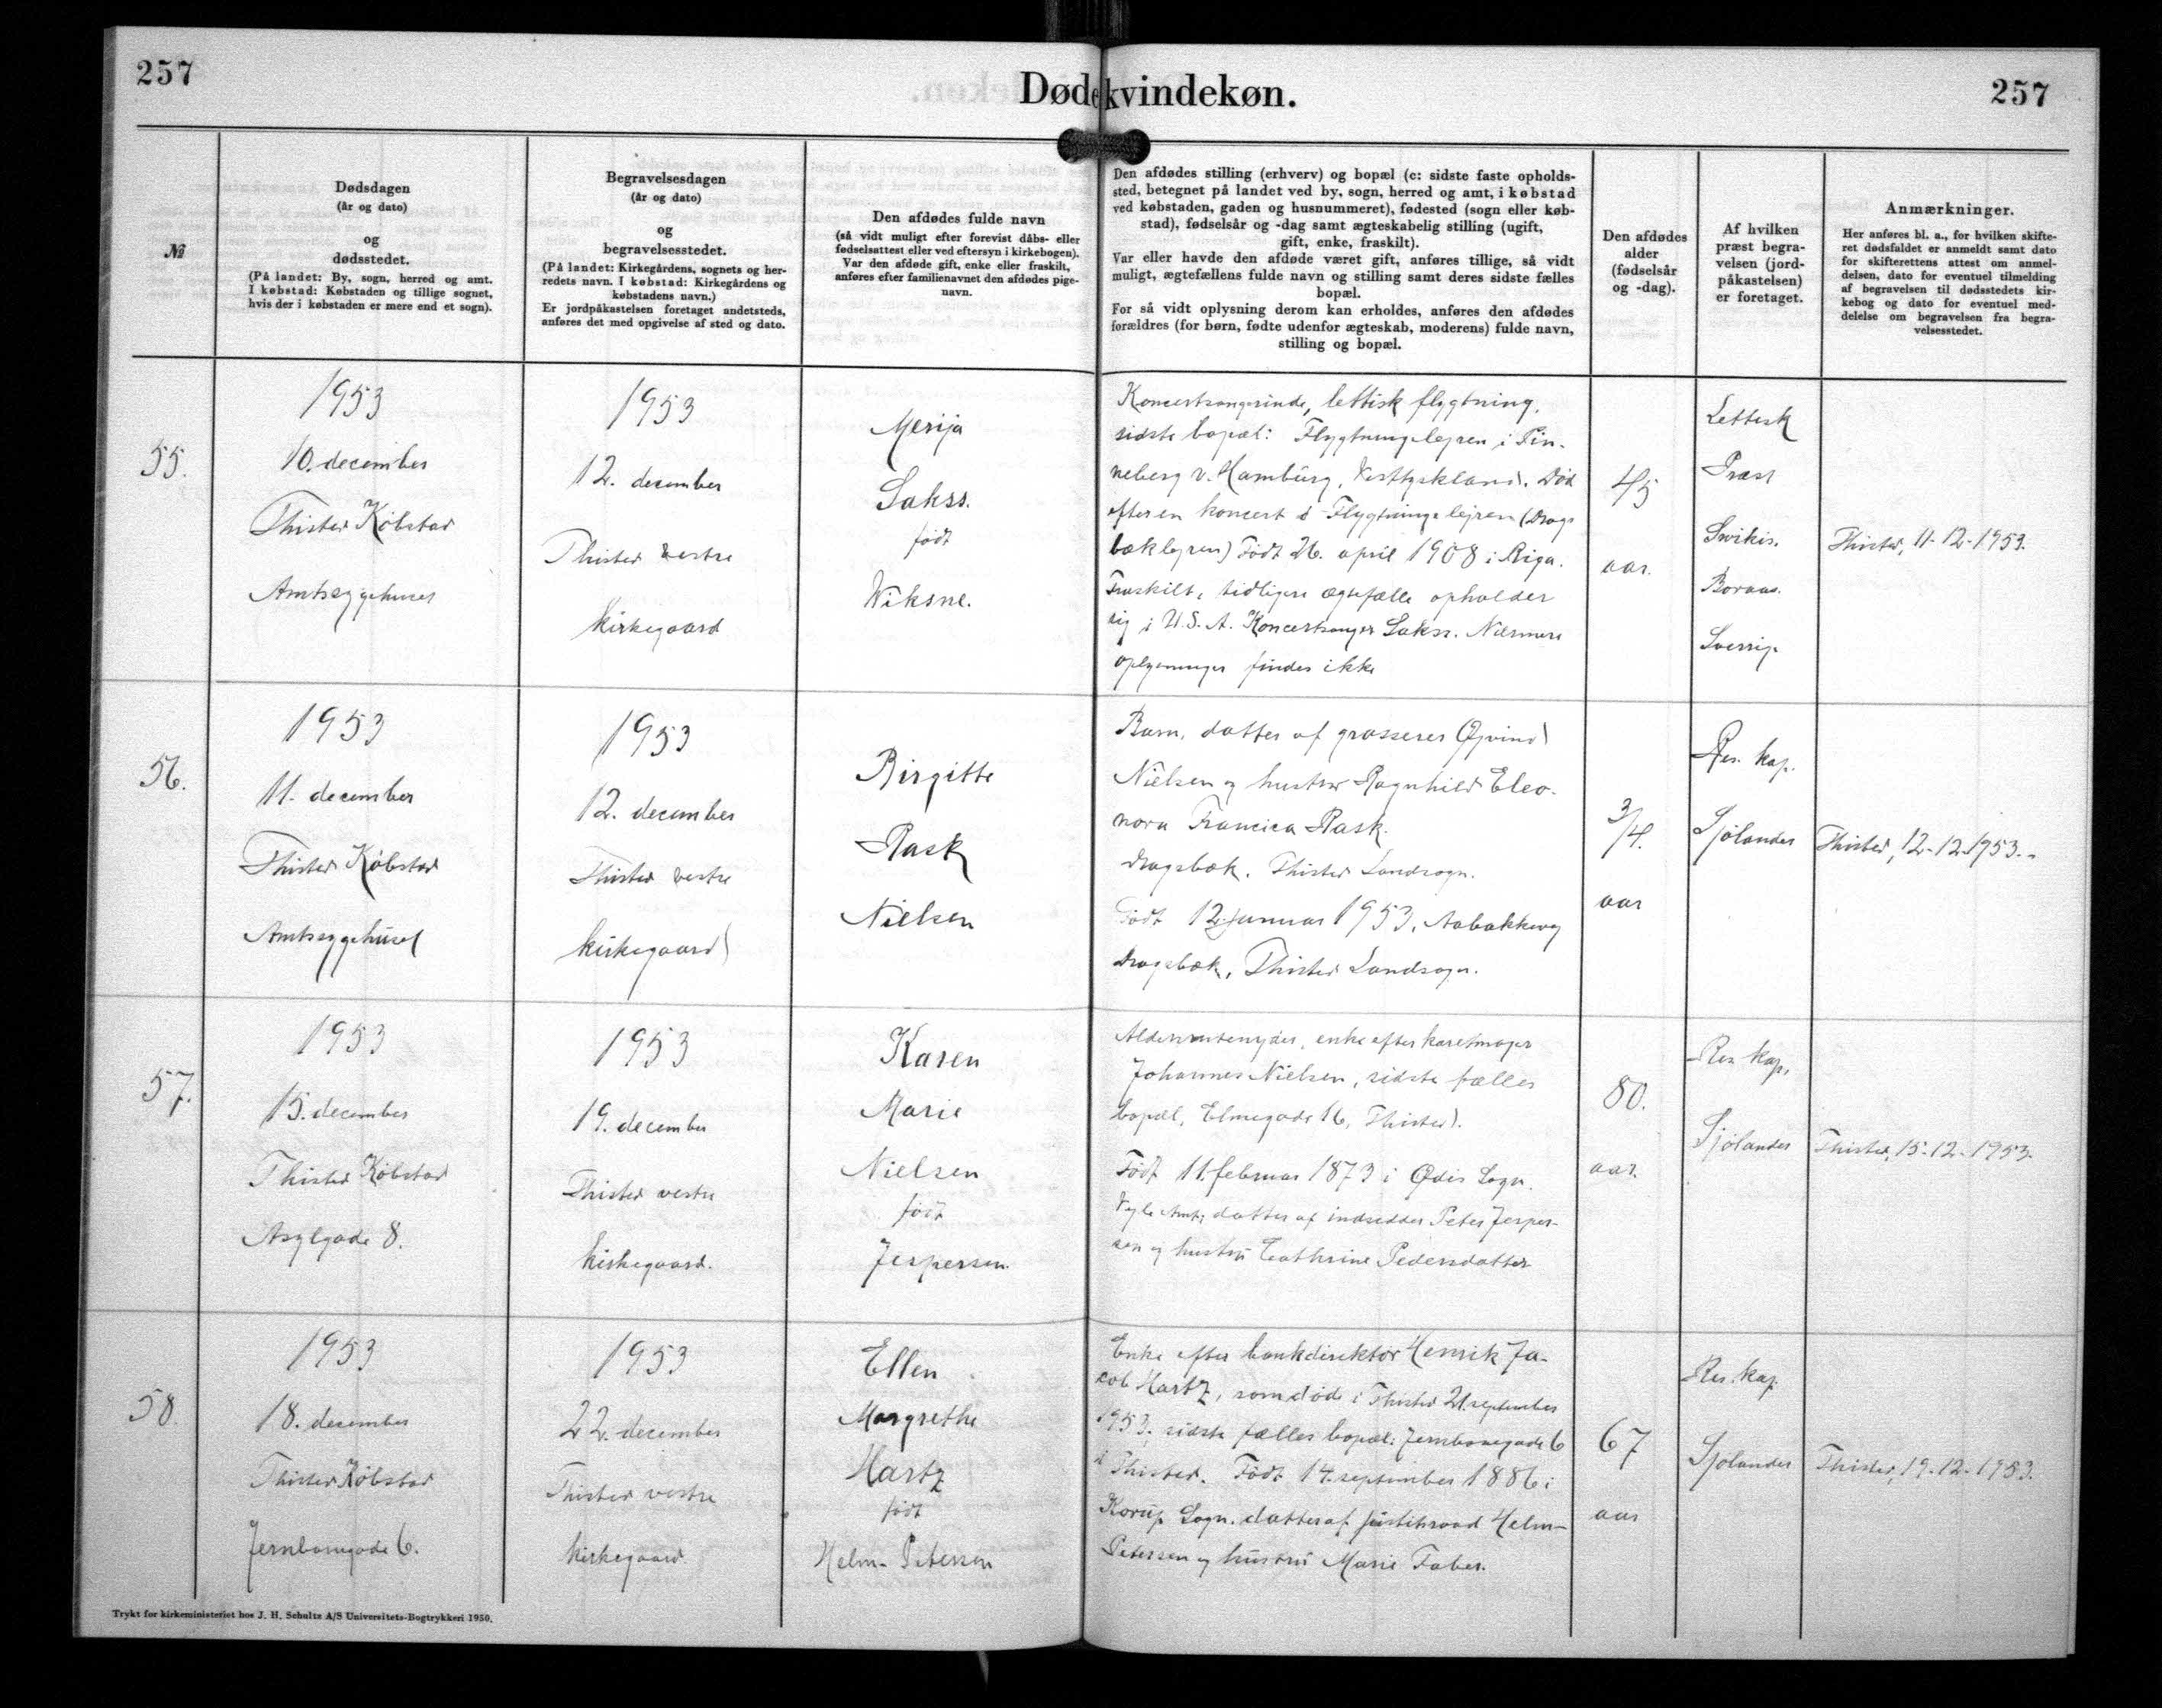 257
Døde kvindekøn.
257
№
Dødsdagen
(år og dato)
og
dødsstedet.
(På landet: By, sogn, herred og amt.
I købstad: Købstaden og tillige sognet,
hvis der i købstaden er mere end et sogn).
Begravelsesdagen
(år og dato)
og
begravelsesstedet.
(På landet: Kirkegårdens, sognets og her-
redets navn. I købstad: Kirkegårdens og
købstadens navn.)
Er jordpåkastelsen foretaget andetsteds,
anføres det med opgivelse af sted og dato.
Den afdødes fulde navn
(så vidt muligt efter forevist dåbs- eller
fødselsattest eller ved eftersyn i kirkebogen).
Var den afdøde gift, enke eller fraskilt,
anføres efter familienavnet den afdødes pige-
navn.
Den afdødes stilling (erhverv) og bopæl (c: sidste faste opholds-
sted, betegnet på landet ved by, sogn, herred og amt, i købstad
ved købstaden, gaden og husnummeret), fødested (sogn eller køb-
stad), fødselsår og -dag samt ægteskabelig stilling (ugift,
gift, enke, fraskilt).
Var eller havde den afdøde været gift, anføres tillige, så vidt
muligt, ægtefællens fulde navn og stilling samt deres sidste fælles
bopæl.
For så vidt oplysning derom kan erholdes, anføres den afdødes
forældres (for børn, fødte udenfor ægteskab, moderens) fulde navn,
stilling og bopæl.
Den afdødes
alder
(fødselsår
og -dag).
Af hvilken
præst begra-
velsen (jord-
påkastelsen)
er foretaget.
Anmærkninger.
Her anføres bl. a., for hvilken skifte-
ret dødsfaldet er anmeldt samt dato
for skifterettens attest om anmel-
delsen, dato for eventuel tilmelding
af begravelsen til dødsstedets kir-
kebog og dato for eventuel med-
delelse om begravelsen fra begra-
velsesstedet.
55.
1953
10. december
Thisted Købstad
Amtssygehuset
1953
12. december
Thisted vestre
kirkegaard
Merija
Sakss.
født
Wiksne.
Koncertsangerinde, lettisk flygtning,
sidste bopæl: Flygtningelejren i Pin-
neberg v. Hamburg, Vesttyskland. Død
efter en koncert i Flygtningelejren (Drags
bæklejren) Født 26. april 1908 i Riga.
Fraskilt, tidligere ægtefælle opholder
sig i U.S.A. Koncertsanger Sakss. Nærmere
oplysninger findes ikke
45
aar.
Lettisk
Præst
Swikis.
Boraas.
Sverrig.
Thisted, 11-12-1953.
56.
1953
11. december
Thisted Købstad
Amtssygehuset
1953
12. december
Thisted vestre
kirkegaard
Birgitte
Rask
Nielsen
Barn, datter af grosserer Øjvind
Nielsen og hustru Ragnhild Eleo-
nora Francica Rask.
Dragsbæk. Thisted Landsogn.
Født 12. januar 1953, Aabakkevej
Dragsbæk, Thisted Landsogn.
3/4.
aar
Res. kap.
Sjølander
Thisted, 12-12-1953.-
57.
1953
15. december
Thisted Købstad
Asylgade 8.
1953
19. december
Thisted vestre
kirkegaard.
Karen
Marie
Nielsen
født
Jespersen.
Aldersrentenyder, enke efter karetmager
Johannes Nielsen, sidste fælles
bopæl, Elmegade 16, Thisted.
Født 11. februar 1873 i Ødis Sogn.
Vejle Amt; datter af indsidder Peter Jesper-
sen og hustru Cathrine Pedersdatter
80.
aar.
Res. kap.
Sjølander
Thisted, 15-12-1953.
58.
1953
18. december
Thisted Købstad
Jernbanegade 6.
1953
22. december
Thisted vestre
kirkegaard
Ellen
Margrethe
Hartz
født
Helm-Petersen
Enke efter bankdirektør Henrik Ja-
cob Hartz, som døde i Thisted 21. september
1953; sidste fælles bopæl: Jernbanegade 6
i Thisted. Født 14. september 1886 i
Korup Sogn. datter af justitsraad Helm-
Petersen og hustru Marie Faber.
67
aar
Res. kap.
Sjølander
Thisted, 19-12-1953.
Trykt for kirkeministeriet hos J. H. Schultz A/S Universitets-Bogtrykkeri 1950.